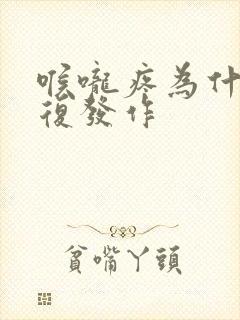 喉嚨疼為什
復發作
貧嘴丫頭